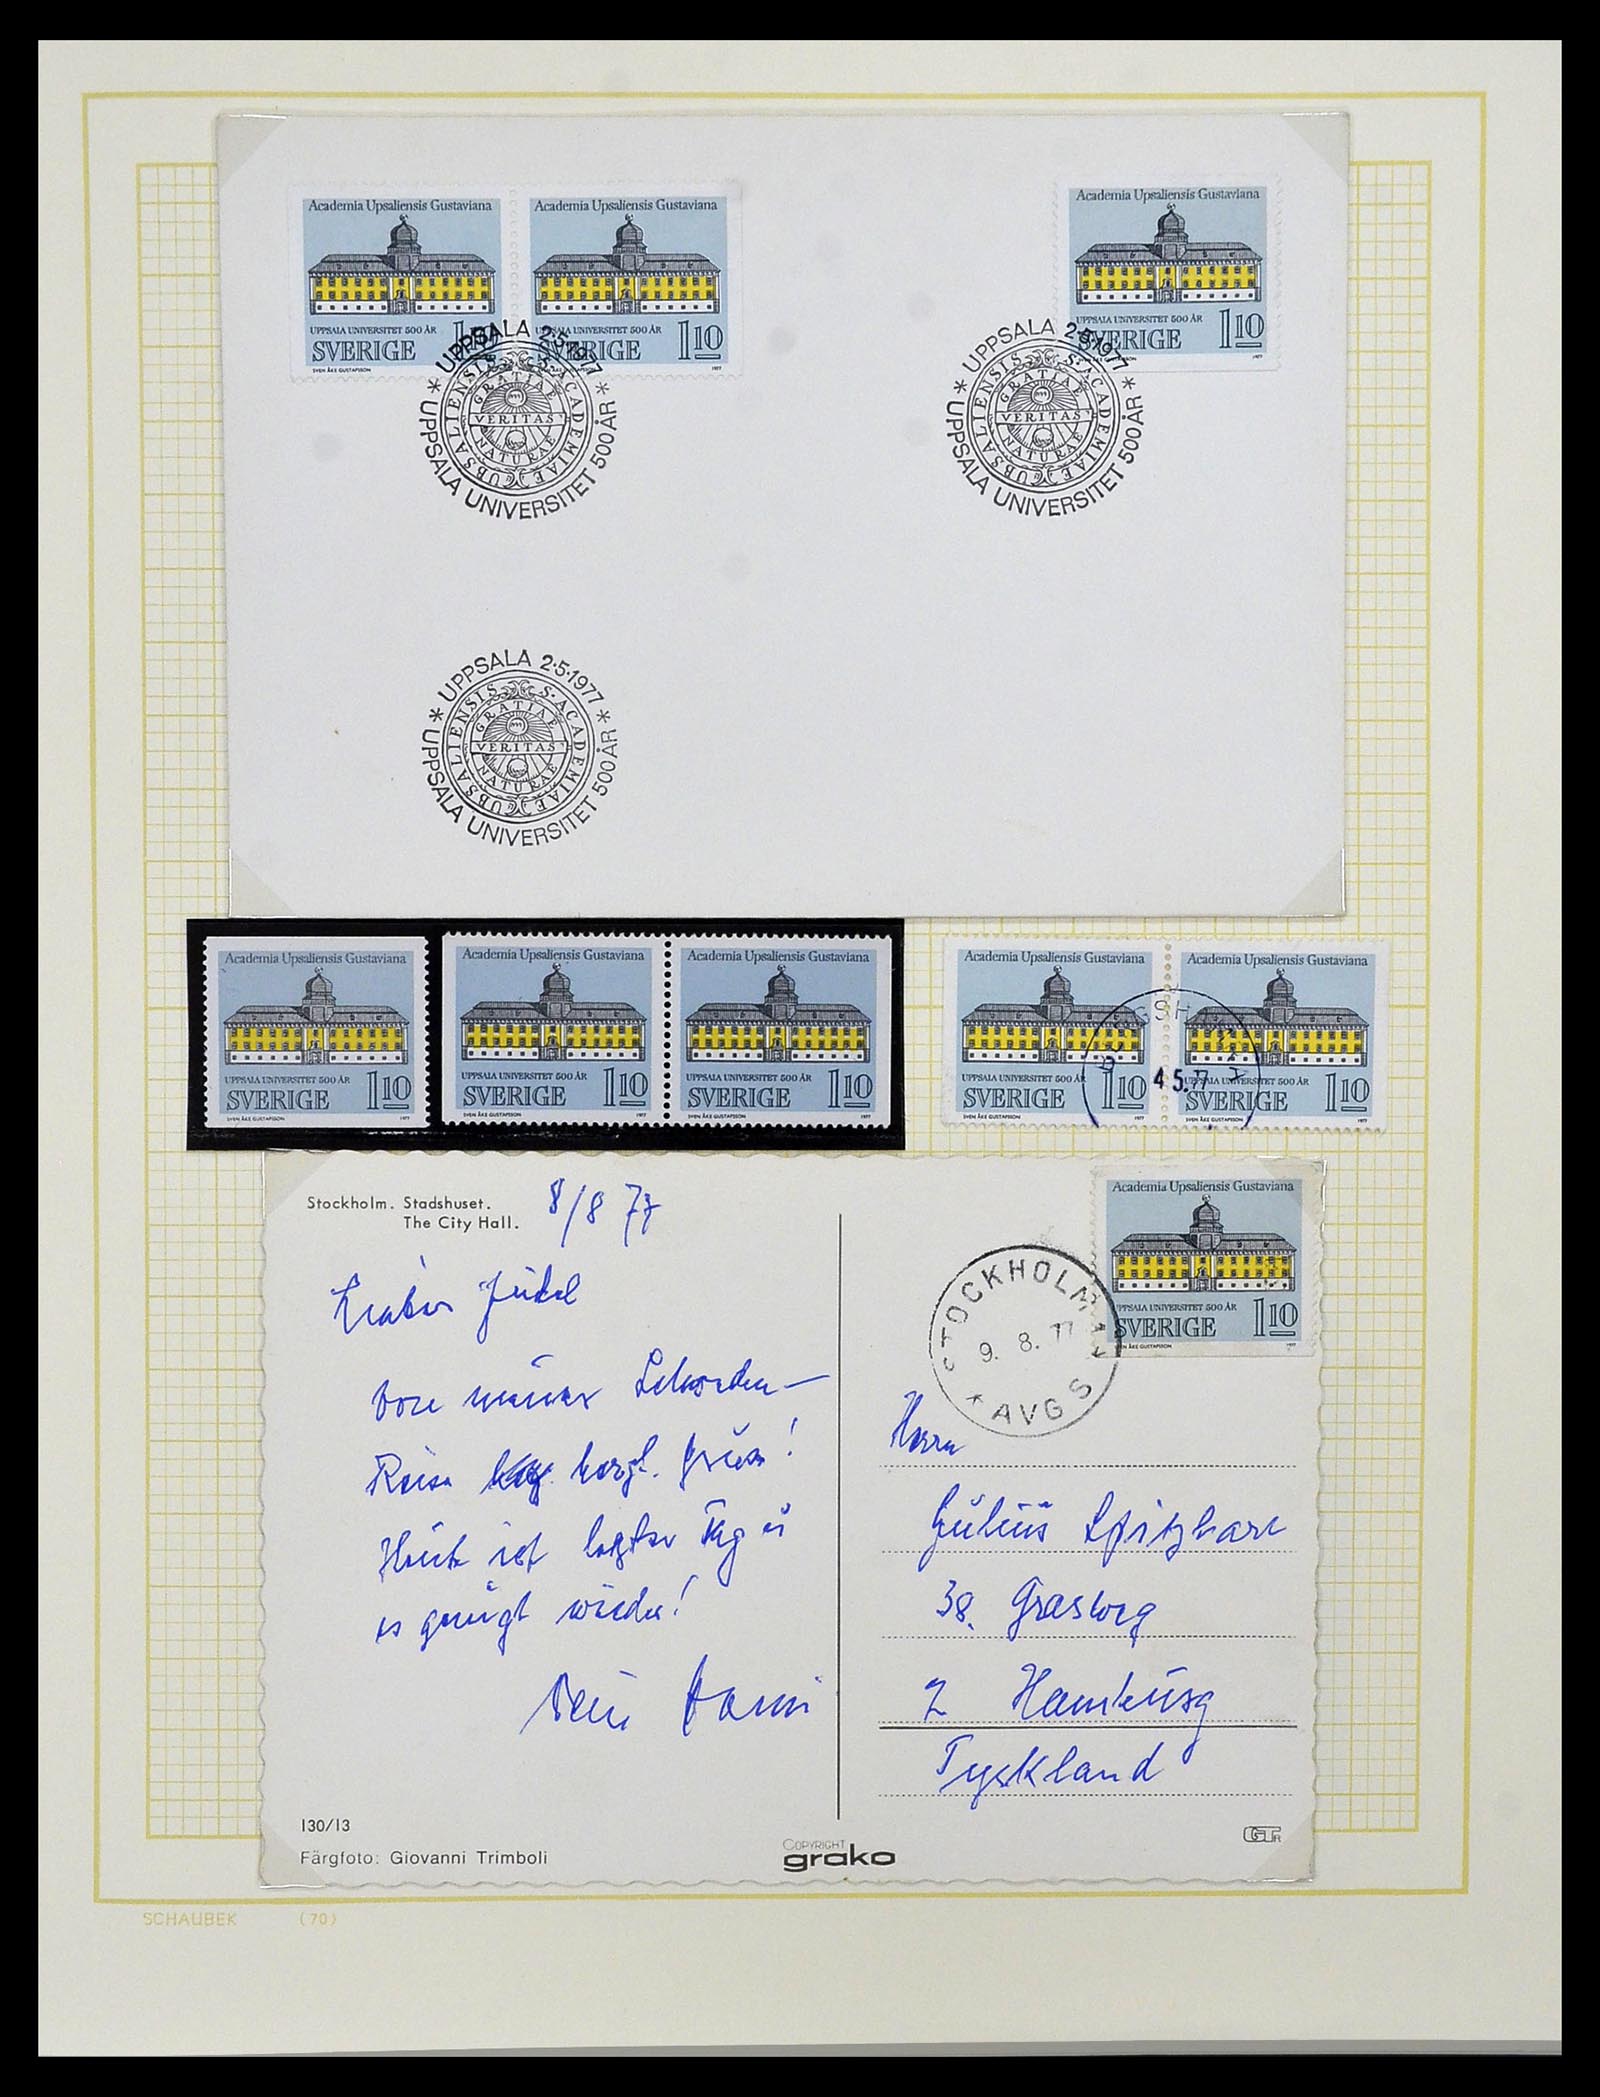 Academia Upsaliensis Gustaviana
UPPSALA UNIVERSITET 500 ÅR
SVERIGE
SVEN ÅKE GUSTAFSSON
Academia Upsaliensis Gustaviana
UPPSALA UNIVERSITET 500 ÅR 110
SVERIGE
1977
Academia Upsaliensis Gustaviana
UPPSALA UNIVERSITET 500 ÅR 110
SVERIGE
1977
UPPSALA 2·5·1977
* UPPSALA UNIVERSITET 500 ÅR *
S· ACADEMIAE UBSALIENSIS
GRATIAE
VERITAS
NATURAE
UPPSALA 2·5·1977
* UPPSALA UNIVERSITET 500 ÅR *
S· ACADEMIAE UBSALIENSIS
GRATIAE
VERITAS
NATURAE
UPPSALA 2·5·1977
* UPPSALA UNIVERSITET 500 ÅR *
S· ACADEMIAE UBSALIENSIS
GRATIAE
VERITAS
NATURAE
Academia Upsaliensis Gustaviana
UPPSALA UNIVERSITET 500 ÅR 110
SVERIGE
SVEN ÅKE GUSTAFSSON 1977
Academia Upsaliensis Gustaviana
UPPSALA UNIVERSITET 500 ÅR 110
SVERIGE
SVEN ÅKE GUSTAFSSON 1977
Academia Upsaliensis Gustaviana
UPPSALA UNIVERSITET 500 ÅR 110
SVERIGE
SVEN ÅKE GUSTAFSSON 1977
Academia Upsaliensis Gustaviana
UPPSALA UNIVERSITET 500 ÅR 110
SVERIGE
SVEN ÅKE GUSTAFSSON
Academia Upsaliensis Gustaviana
UPPSALA UNIVERSITET 500 ÅR 110
SVERIGE
SVEN ÅKE GUSTAFSSON 1977
4.5.77
Stockholm. Stadshuset.
The City Hall.
8/8 77
von meiner Schweden-
Reise herzl. Grüße!
Heute ist letzter Tag u
es genügt wieder!
Dein
Academia Upsaliensis Gustaviana
UPPSALA UNIVERSITET 500 ÅR 110
SVERIGE
SVEN ÅKE GUSTAFSSON 1977
STOCKHOLM BAN
9. 8. 77
* AVG S
Herrn
Julius
38.
2 Hamburg
Tyskland
130/13
Färgfoto: Giovanni Trimboli
COPYRIGHT
grako
SCHAUBEK (70)